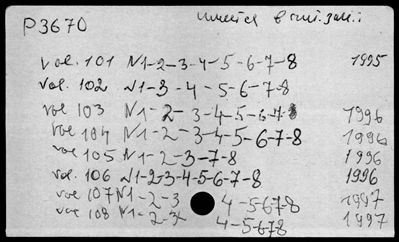 P3670 имеется в чит. зал.:
vol. 101 N1-2-3-4-5-6-7-8 1995
vol. 102 N1-3-4-5-6-7-8
vol 103 N1-2-3-4-5-6-7-8 1996
vol 104 N1-2-3-4-5-6-7-8 1996
vol 105 N1-2-3-7-8 1996
vol. 106 N1-2-3-4-5-6-7-8 1996
vol 107 N1-2-3 4-5-6-7-8 1997
vol 108 N1-2-3 4-5-6-7-8 1997